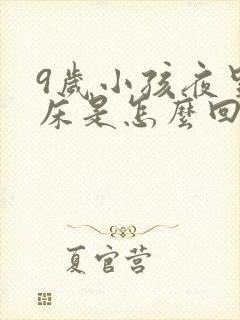 9歲小孩夜
床是怎麼回
夏官营